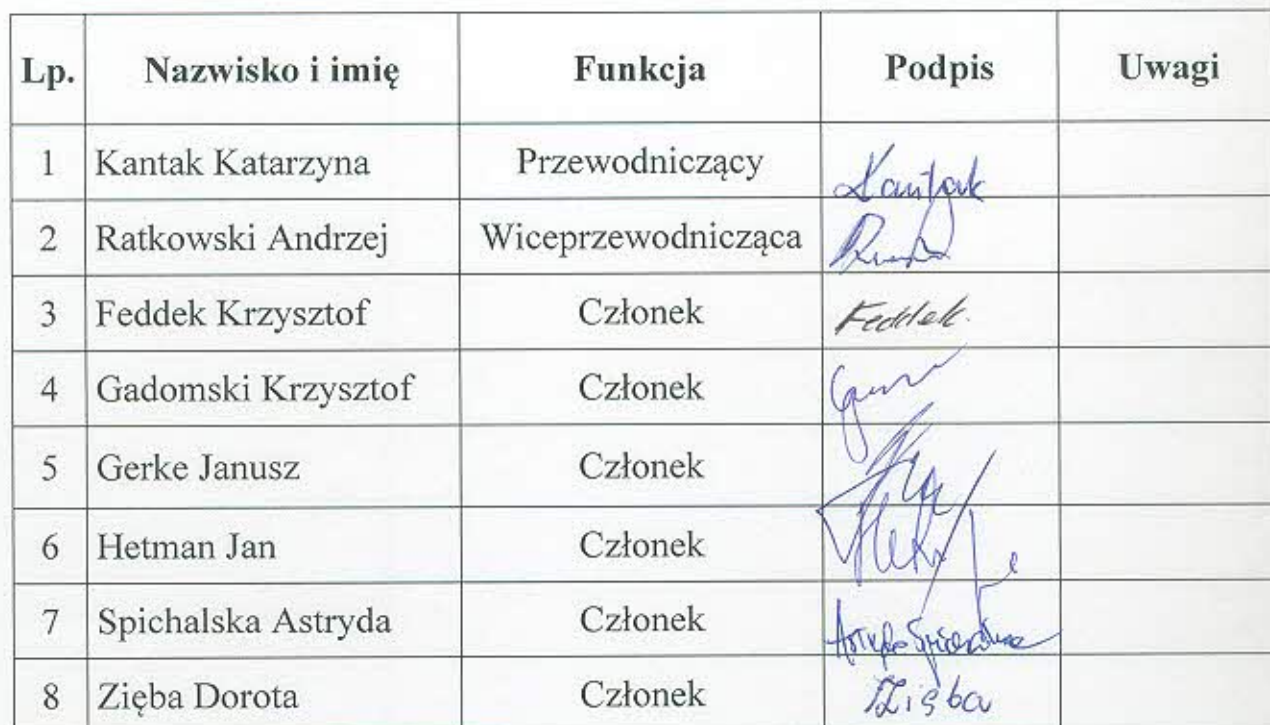 Lp. Nazwisko i imię Funkcja Podpis Uwagi
1 Kantak Katarzyna Przewodniczący Kantak
2 Ratkowski Andrzej Wiceprzewodnicząca
3 Feddek Krzysztof Członek Feddek.
4 Gadomski Krzysztof Członek
5 Gerke Janusz Członek
6 Hetman Jan Członek
7 Spichalska Astryda Członek
8 Zięba Dorota Członek Zięba